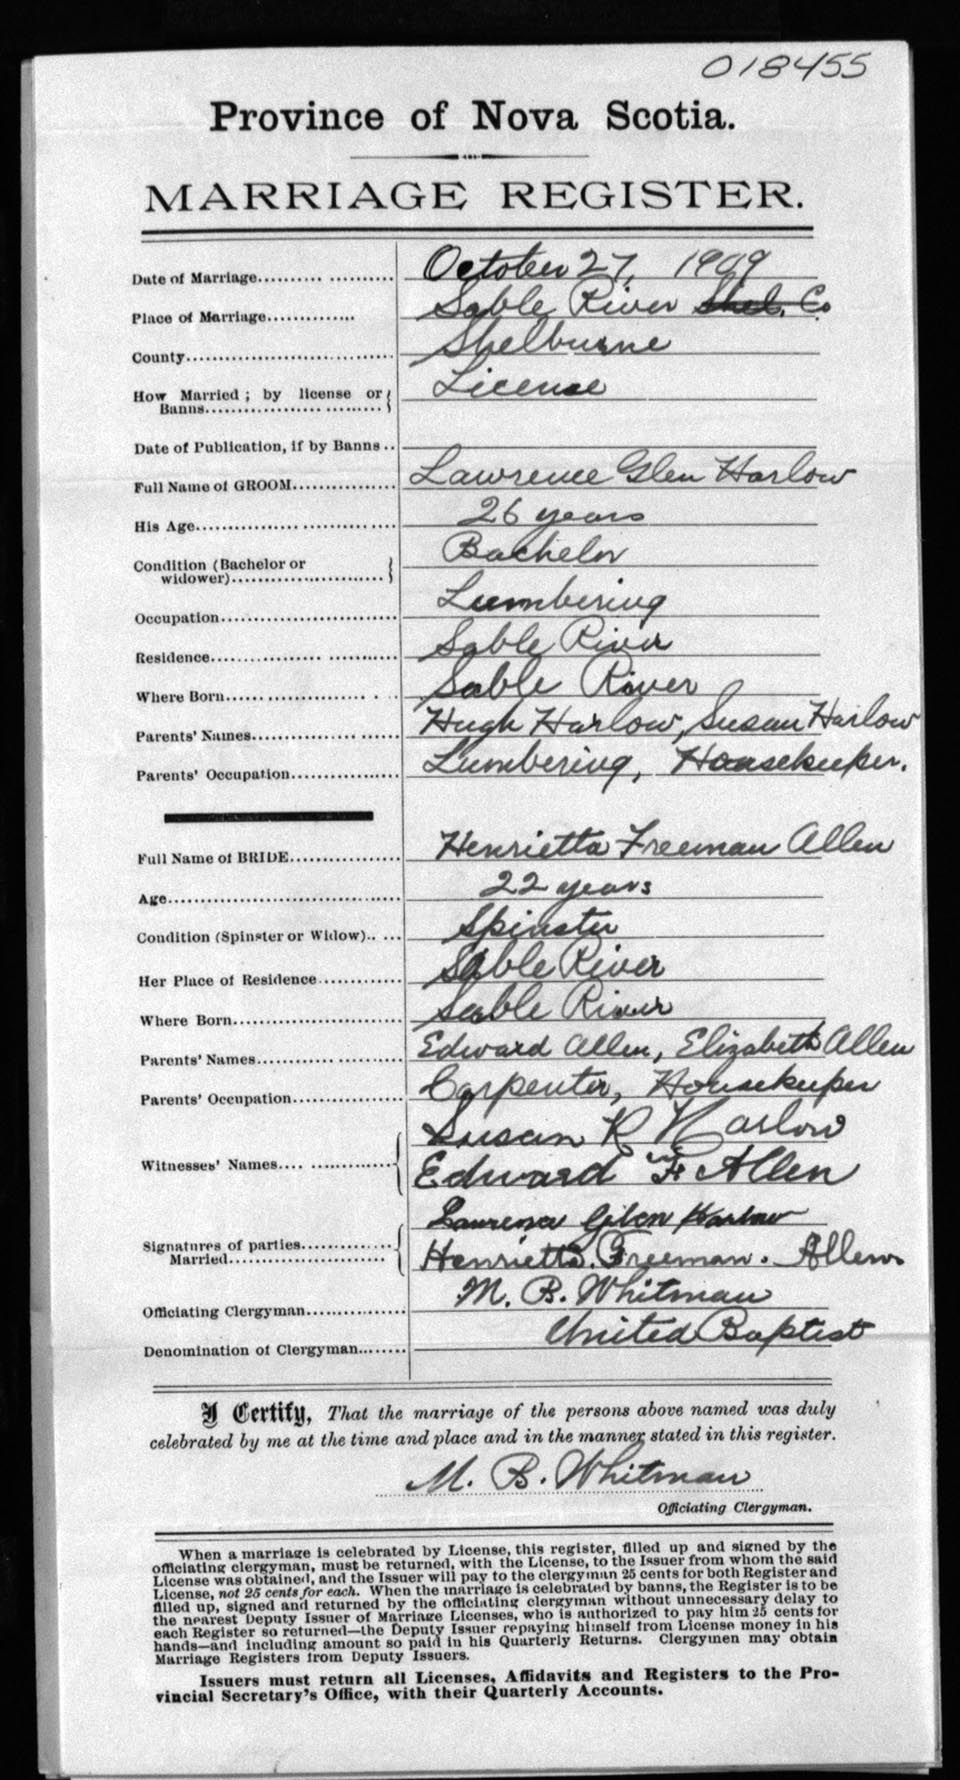 018455
Province of Nova Scotia.
MARRIAGE REGISTER.
Date of Marriage October 27, 1909
Place of Marriage Sable River Shel. Co
County Shelburne
How Married; by license or
Banns License
Date of Publication, if by Banns
Full Name of GROOM Lawrence Glen Harlow
His Age 26 years
Condition (Bachelor or
widower) Bachelor
Occupation Lumbering
Residence Sable River
Where Born Sable River
Parents' Names Hugh Harlow, Susan Harlow
Parents' Occupation Lumbering, Housekeeper.
Full Name of BRIDE Henrietta Freeman Allen
Age 22 years
Condition (Spinster or Widow) Spinster
Her Place of Residence Sable River
Where Born Sable River
Parents' Names Edward Allen, Elizabeth Allen
Parents' Occupation Carpenter, Housekeeper
Susan R Harlow
Witnesses' Names Edward F Allen
Lawrence Glen Harlow
Signatures of parties
Married Henrietta. Freeman. Allen
Officiating Clergyman M. B. Whitman
Denomination of Clergyman United Baptist
I Certify, That the marriage of the persons above named was duly
celebrated by me at the time and place and in the manner stated in this register.
M. B. Whitman
Officiating Clergyman.
When a marriage is celebrated by License, this register, filled up and signed by the
officiating clergyman, must be returned, with the License, to the Issuer from whom the said
License was obtained, and the Issuer will pay to the clergyman 25 cents for both Register and
License, not 25 cents for each. When the marriage is celebrated by banns, the Register is to be
filled up, signed and returned by the officiating clergyman without unnecessary delay to
the nearest Deputy Issuer of Marriage Licenses, who is authorized to pay him 25 cents for
each Register so returned—the Deputy Issuer repaying himself from License money in his
hands—and including amount so paid in his Quarterly Returns. Clergymen may obtain
Marriage Registers from Deputy Issuers.
Issuers must return all Licenses, Affidavits and Registers to the Pro-
vincial Secretary's Office, with their Quarterly Accounts.